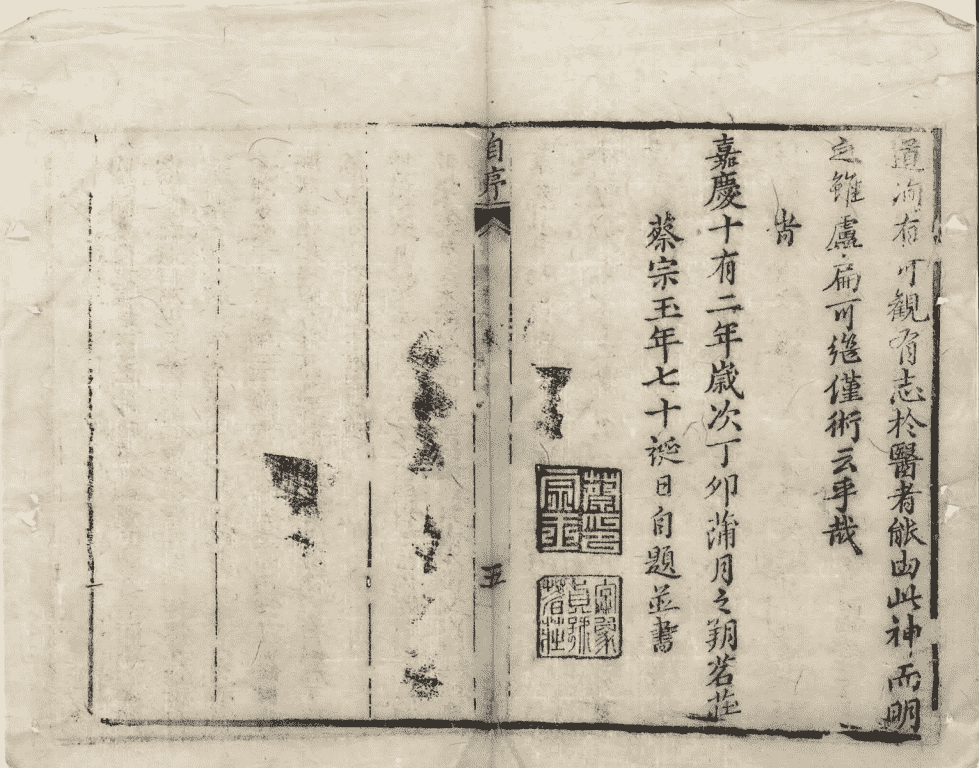 道洵有可觀有志於醫者能由此神而明
之雖盧扁可繼僅術云乎哉
旹
嘉慶十有二年歲次丁卯蒲月之朔茗莊
蔡宗玉年七十裢日自題並書
自序
五